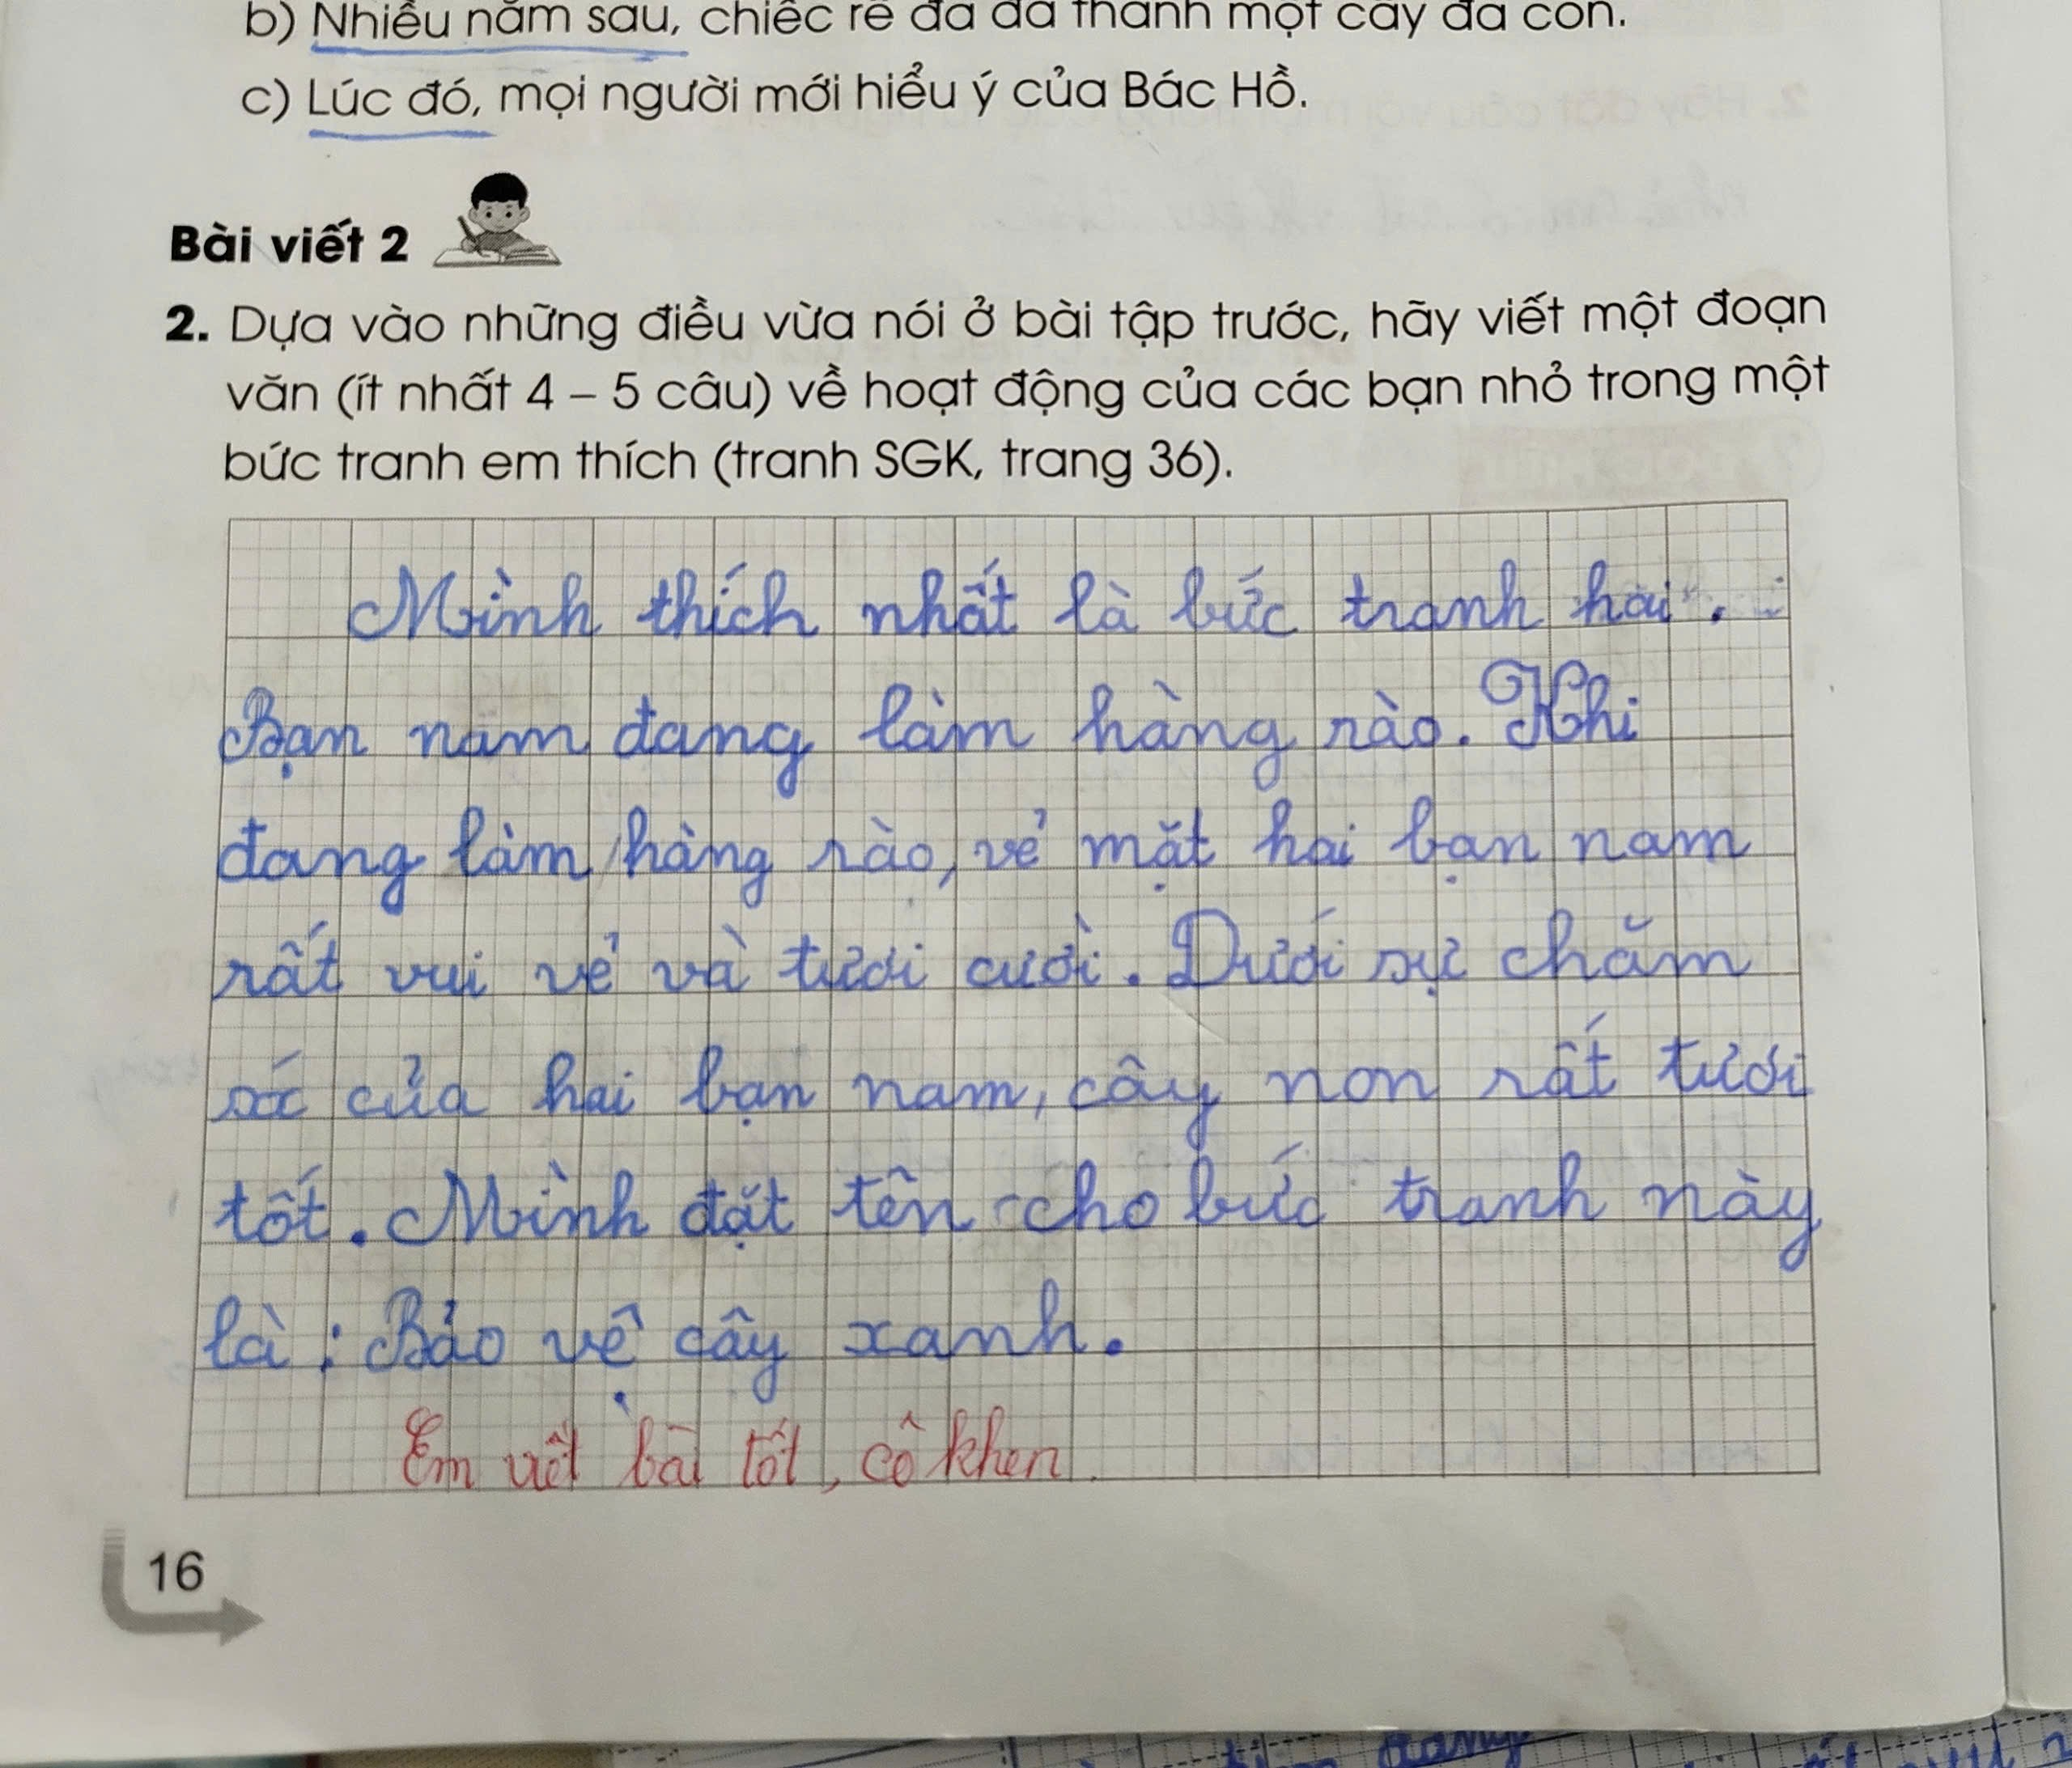 b) Nhiều năm sau, chiếc rễ đa đã thành một cây đa con.
c) Lúc đó, mọi người mới hiểu ý của Bác Hồ.
Bài viết 2
2. Dựa vào những điều vừa nói ở bài tập trước, hãy viết một đoạn
văn (ít nhất 4 – 5 câu) về hoạt động của các bạn nhỏ trong một
bức tranh em thích (tranh SGK, trang 36).
Mình thích nhất là bức tranh hai.
Bạn nam đang làm hàng rào. Khi
đang làm hàng rào, vẻ mặt hai bạn nam
rất vui vẻ và tươi cười. Dưới sự chăm
sóc của hai bạn nam, cây non rất tươi
tốt. Mình đặt tên cho bức tranh này
là: Bảo vệ cây xanh.
Em viết bài tốt, cô khen.
16